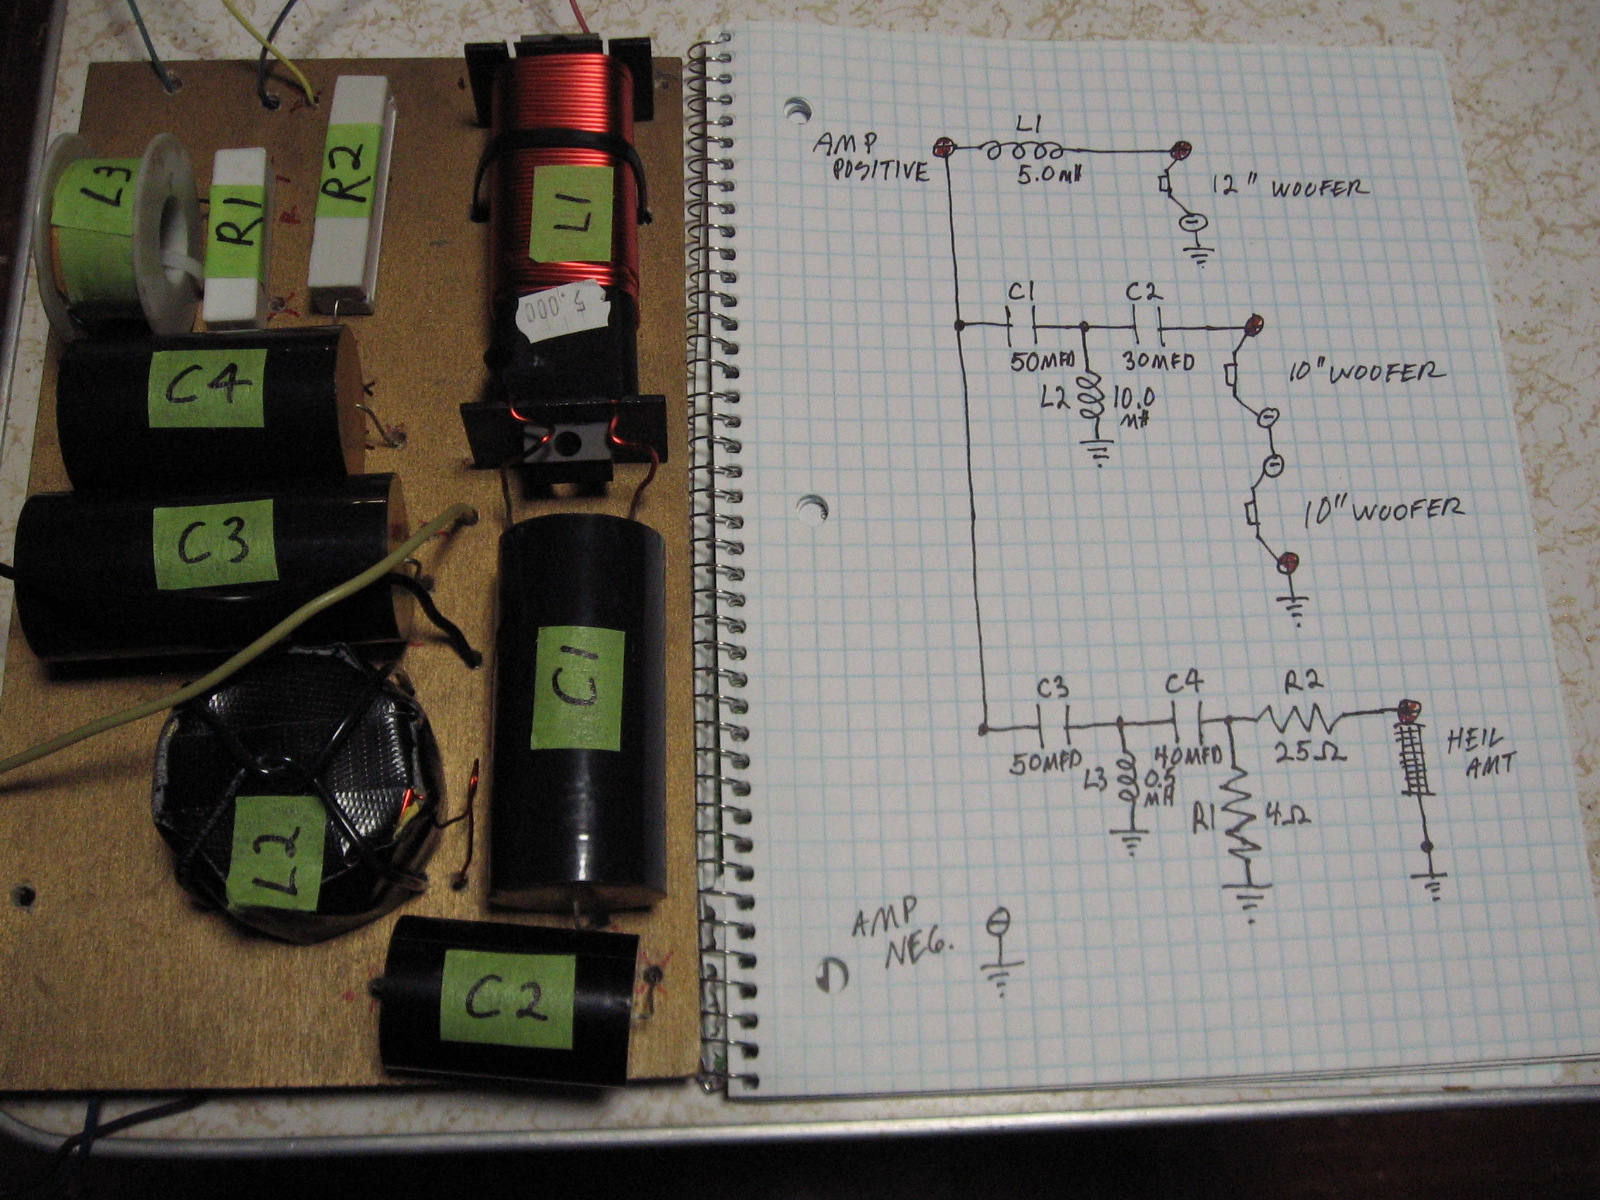 L3
R1
R2
L1
5.000
C4
C3
C1
L2
C2
AMP
POSITIVE
L1
5.0mH
12" WOOFER
C1
C2
50MFD
30MFD
L2
10.0
MH
10" WOOFER
10" WOOFER
C3
C4
R2
50MFD
40MFD
25Ω
L3
0.5
MH
R1
4Ω
HEIL
AMT
AMP
NEG.